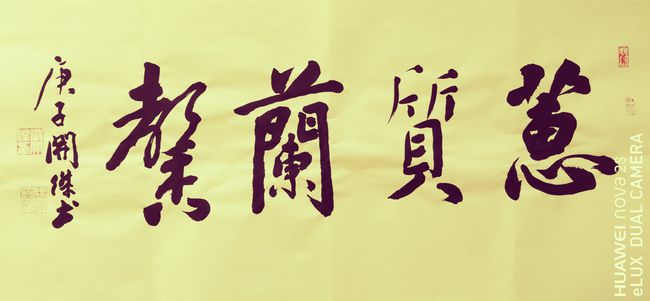 蕙質蘭馨
庚子開傑书
HUAWEI nova 2s
eLUX DUAL CAMERA